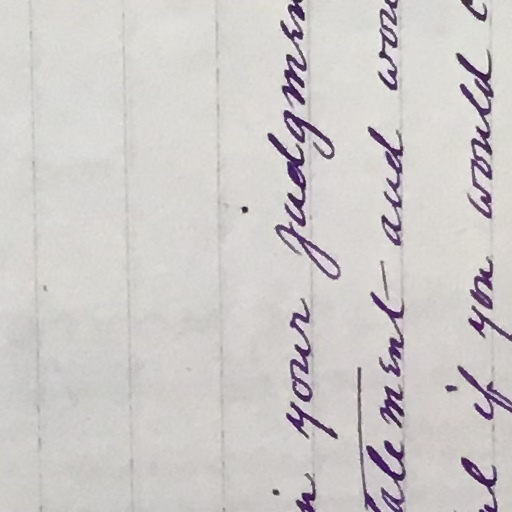 in your judgmen
tatement and wou
ul if you would c